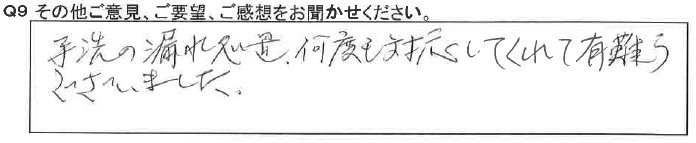 Q9 その他ご意見、ご要望、ご感想をお聞かせください。
手洗の漏れ処置、何度も対応してくれて有難う
ございました。